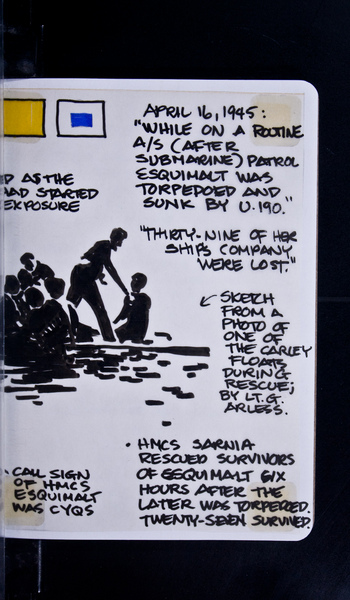 APRIL 16, 1945:
"WHILE ON A ROUTINE
A/S (AFTER
SUBMARINE) PATROL
ESQUIMALT WAS
TORPEDOED AND
SUNK BY U.190."
D AS THE
HAD STARTED
EXPOSURE
"THIRTY-NINE OF HER
SHIP'S COMPANY
WERE LOST."
SKETCH
FROM A
PHOTO OF
ONE OF
THE CARLEY
FLOATS
DURING
RESCUE;
BY LT. G.
ARLESS.
• CALL SIGN
OF HMCS
ESQUIMALT
WAS CYQS
• HMCS SARNIA
RESCUED SURVIVORS
OF ESQUIMALT SIX
HOURS AFTER THE
LATER WAS TORPEDOED.
TWENTY-SEVEN SURVIVED.